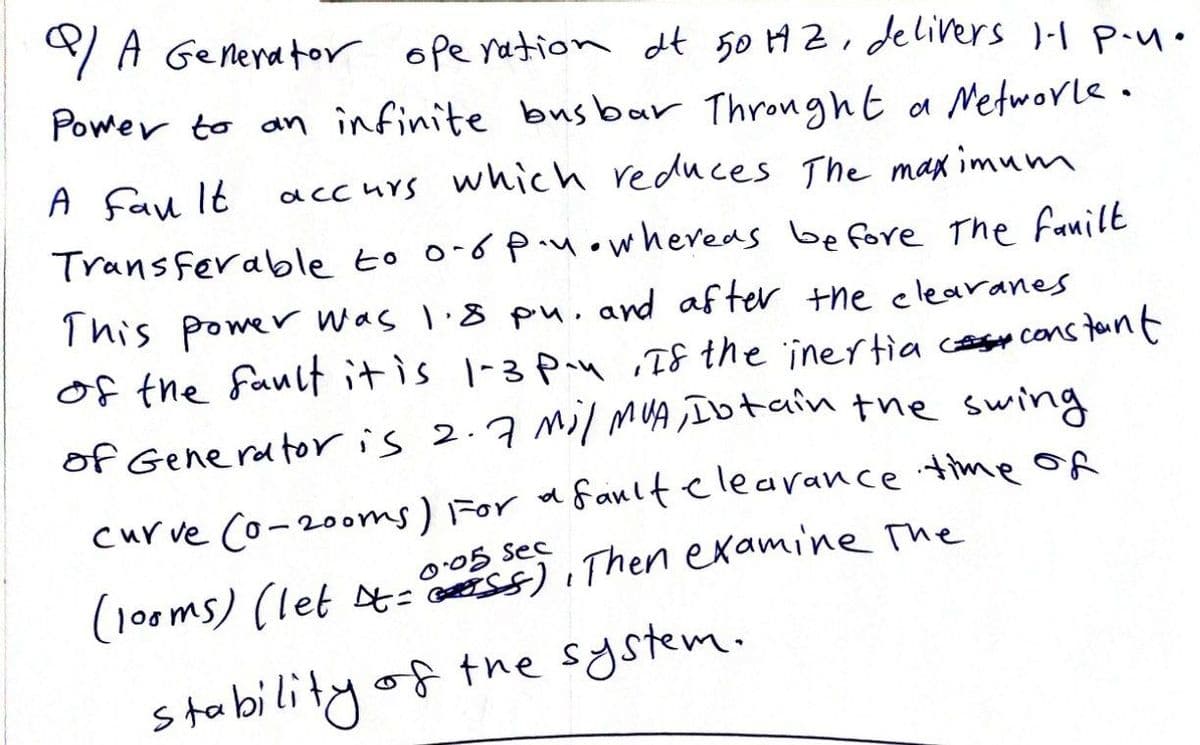 Q/ A Generator operation at 50 HZ, delivers 1-1 p-u.
Power to an infinite bus bar Throught a Network.
A fault accurs which reduces The maximum
Transferable to 0-6 p-u. whereas before The fauilt
This power was 1.8 pu. and after the clearanes
of the fault it is 1-3 p-u, If the inertia constant
of Generator is 2.7 MJ/MVA, Ibtain the swing
curve (0-200ms) For a fault clearance time of
(100ms) (let Δt= 0.05 sec), Then examine The
stability of the system.